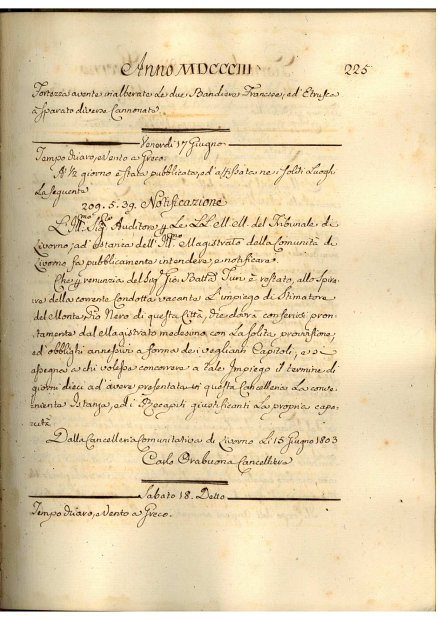 Anno MDCCCIII 225
Fortezza avente inalberate le due Bandiere Francese, ed Etrusca
à sparato diverse Cannonate.
Venerdì 17 Giugno.
Tempo chiaro, e Vento a Greco.
A ½ giorno è stata pubblicata, ed affissata ne i soliti Luoghi
La seguente
209. 5. 39. Notificazione
L'Ill.mo Sig.re Auditore, e Le LL. EE. del Tribunale di
Livorno, ad'istanza dell'Ill.mo Magistrato della Comunità di
Livorno fa pubblicamente intendere, e notificare.
Che renunzia del Sig.re Gio. Batta è restato, allo spira-
re della corrente Condotta vacante L'impiego di Stimatore
del Monte Pio Nero di questa Città, che dovrà conferirsi pron-
tamente dal Magistrato medesimo con La solita provvisione,
ed'obblighi annessivi a forma de i veglianti Capitoli, e si
assegna a chi volesse concorrere a tale Impiego il termine di
giorni dieci ad'avere presentata in questa Cancelleria La conve-
niente Istanza, ed i Recapiti giustificanti La propria capa-
cità.
Dalla Cancelleria Comunitativa di Livorno Li 15 Giugno 1803
Carlo Orabuona Cancelliere
Sabato 18. Detto
Tempo chiaro, e Vento a Greco.